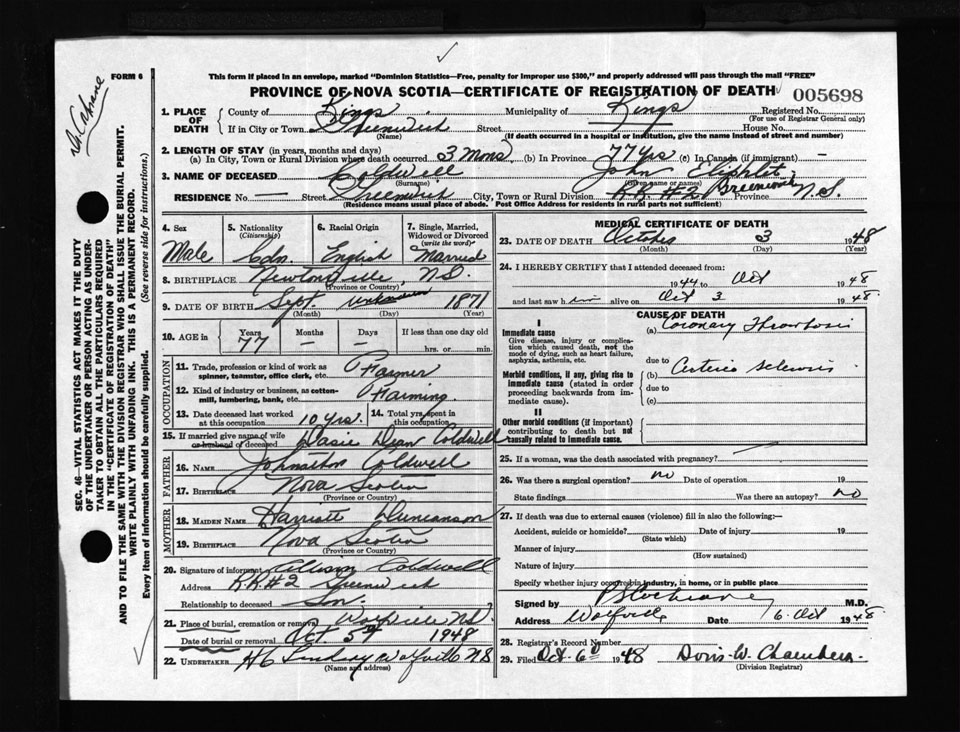 Dr. Cochrane
FORM 6
This form if placed in an envelope, marked "Dominion Statistics—Free, penalty for improper use $300," and properly addressed will pass through the mail "FREE"
PROVINCE OF NOVA SCOTIA—CERTIFICATE OF REGISTRATION OF DEATH 005698
SEC. 46—VITAL STATISTICS ACT MAKES IT THE DUTY
OF THE UNDERTAKER OR PERSON ACTING AS UNDER-
TAKER TO OBTAIN ALL THE PARTICULARS REQUIRED
IN THE "CERTIFICATE OF REGISTRATION OF DEATH"
AND TO FILE THE SAME WITH THE DIVISION REGISTRAR WHO SHALL ISSUE THE BURIAL PERMIT.
WRITE PLAINLY WITH UNFADING INK. THIS IS A PERMANENT RECORD.
Every item of information should be carefully supplied. (See reverse side for instructions.)
1. PLACE OF DEATH
County of Kings Municipality of Kings Registered No.
(For use of Registrar General only)
If in City or Town Greenwich Street House No.
(Name) (If death occurred in a hospital or institution, give the name instead of street and number)
2. LENGTH OF STAY (in years, months and days)
(a) In City, Town or Rural Division where death occurred 3 Mons (b) In Province 77 Yrs (c) In Canada (if immigrant) —
3. NAME OF DECEASED Coldwell John Eliphlet
(Surname) (Given name or names)
RESIDENCE No. — Street Greenwich City, Town or Rural Division R.R. #2 Greenwich Province N.S.
(Residence means usual place of abode. Post Office Address for residents in rural parts not sufficient)
4. Sex 5. Nationality (Citizenship) 6. Racial Origin 7. Single, Married, Widowed or Divorced (write the word)
Male Cdn. English Married
8. BIRTHPLACE Newtonville N.S.
(Province or Country)
9. DATE OF BIRTH Sept. unknown 1871
(Month) (Day) (Year)
10. AGE in Years Months Days If less than one day old
77 — — hrs. or min.
OCCUPATION
11. Trade, profession or kind of work as spinner, teamster, office clerk, etc. Farmer
12. Kind of industry or business, as cotton-mill, lumbering, bank, etc. Farming
13. Date deceased last worked at this occupation 10 yrs. 14. Total yrs. spent in this occupation
15. If married give name of wife or husband of deceased Dasie Dean Coldwell
FATHER
16. NAME Johnathon Coldwell
17. BIRTHPLACE Nova Scotia
(Province or Country)
MOTHER
18. MAIDEN NAME Harriett Duncanson
19. BIRTHPLACE Nova Scotia
(Province or Country)
20. Signature of informant Allison Coldwell
Address R.R. #2 Greenwich
Relationship to deceased Son.
21. Place of burial, cremation or removal Wolfville N.S.
Date of burial or removal Oct 5th 1948
22. UNDERTAKER H C Lindsay Wolfville N S
(Name and address)
MEDICAL CERTIFICATE OF DEATH
23. DATE OF DEATH October 3 1948
(Month) (Day) (Year)
24. I HEREBY CERTIFY that I attended deceased from:
1944 to Oct 1948
and last saw him alive on Oct 3 1948
CAUSE OF DEATH
I
Immediate cause (a) Coronary Thrombosis
Give disease, injury or complication which caused death, not the mode of dying, such as heart failure, asphyxia, asthenia, etc.
due to
Morbid conditions, if any, giving rise to immediate cause (stated in order proceeding backwards from immediate cause). (b) Arterio sclerosis
due to
(c)
II
Other morbid conditions (if important) contributing to death but not causally related to immediate cause.
25. If a woman, was the death associated with pregnancy?
26. Was there a surgical operation? no Date of operation 19
State findings Was there an autopsy? no
27. If death was due to external causes (violence) fill in also the following:—
Accident, suicide or homicide? Date of injury 19
(State which)
Manner of injury
(How sustained)
Nature of injury
Specify whether injury occurred in industry, in home, or in public place
Signed by Cochrane M.D.
Address Wolfville Date 6 Oct 1948
28. Registrar's Record Number
29. Filed Oct. 6th 1948 Doris W. Chambers
(Division Registrar)